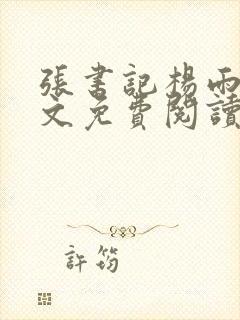 張書記楊雨
文免費閱讀
許筠